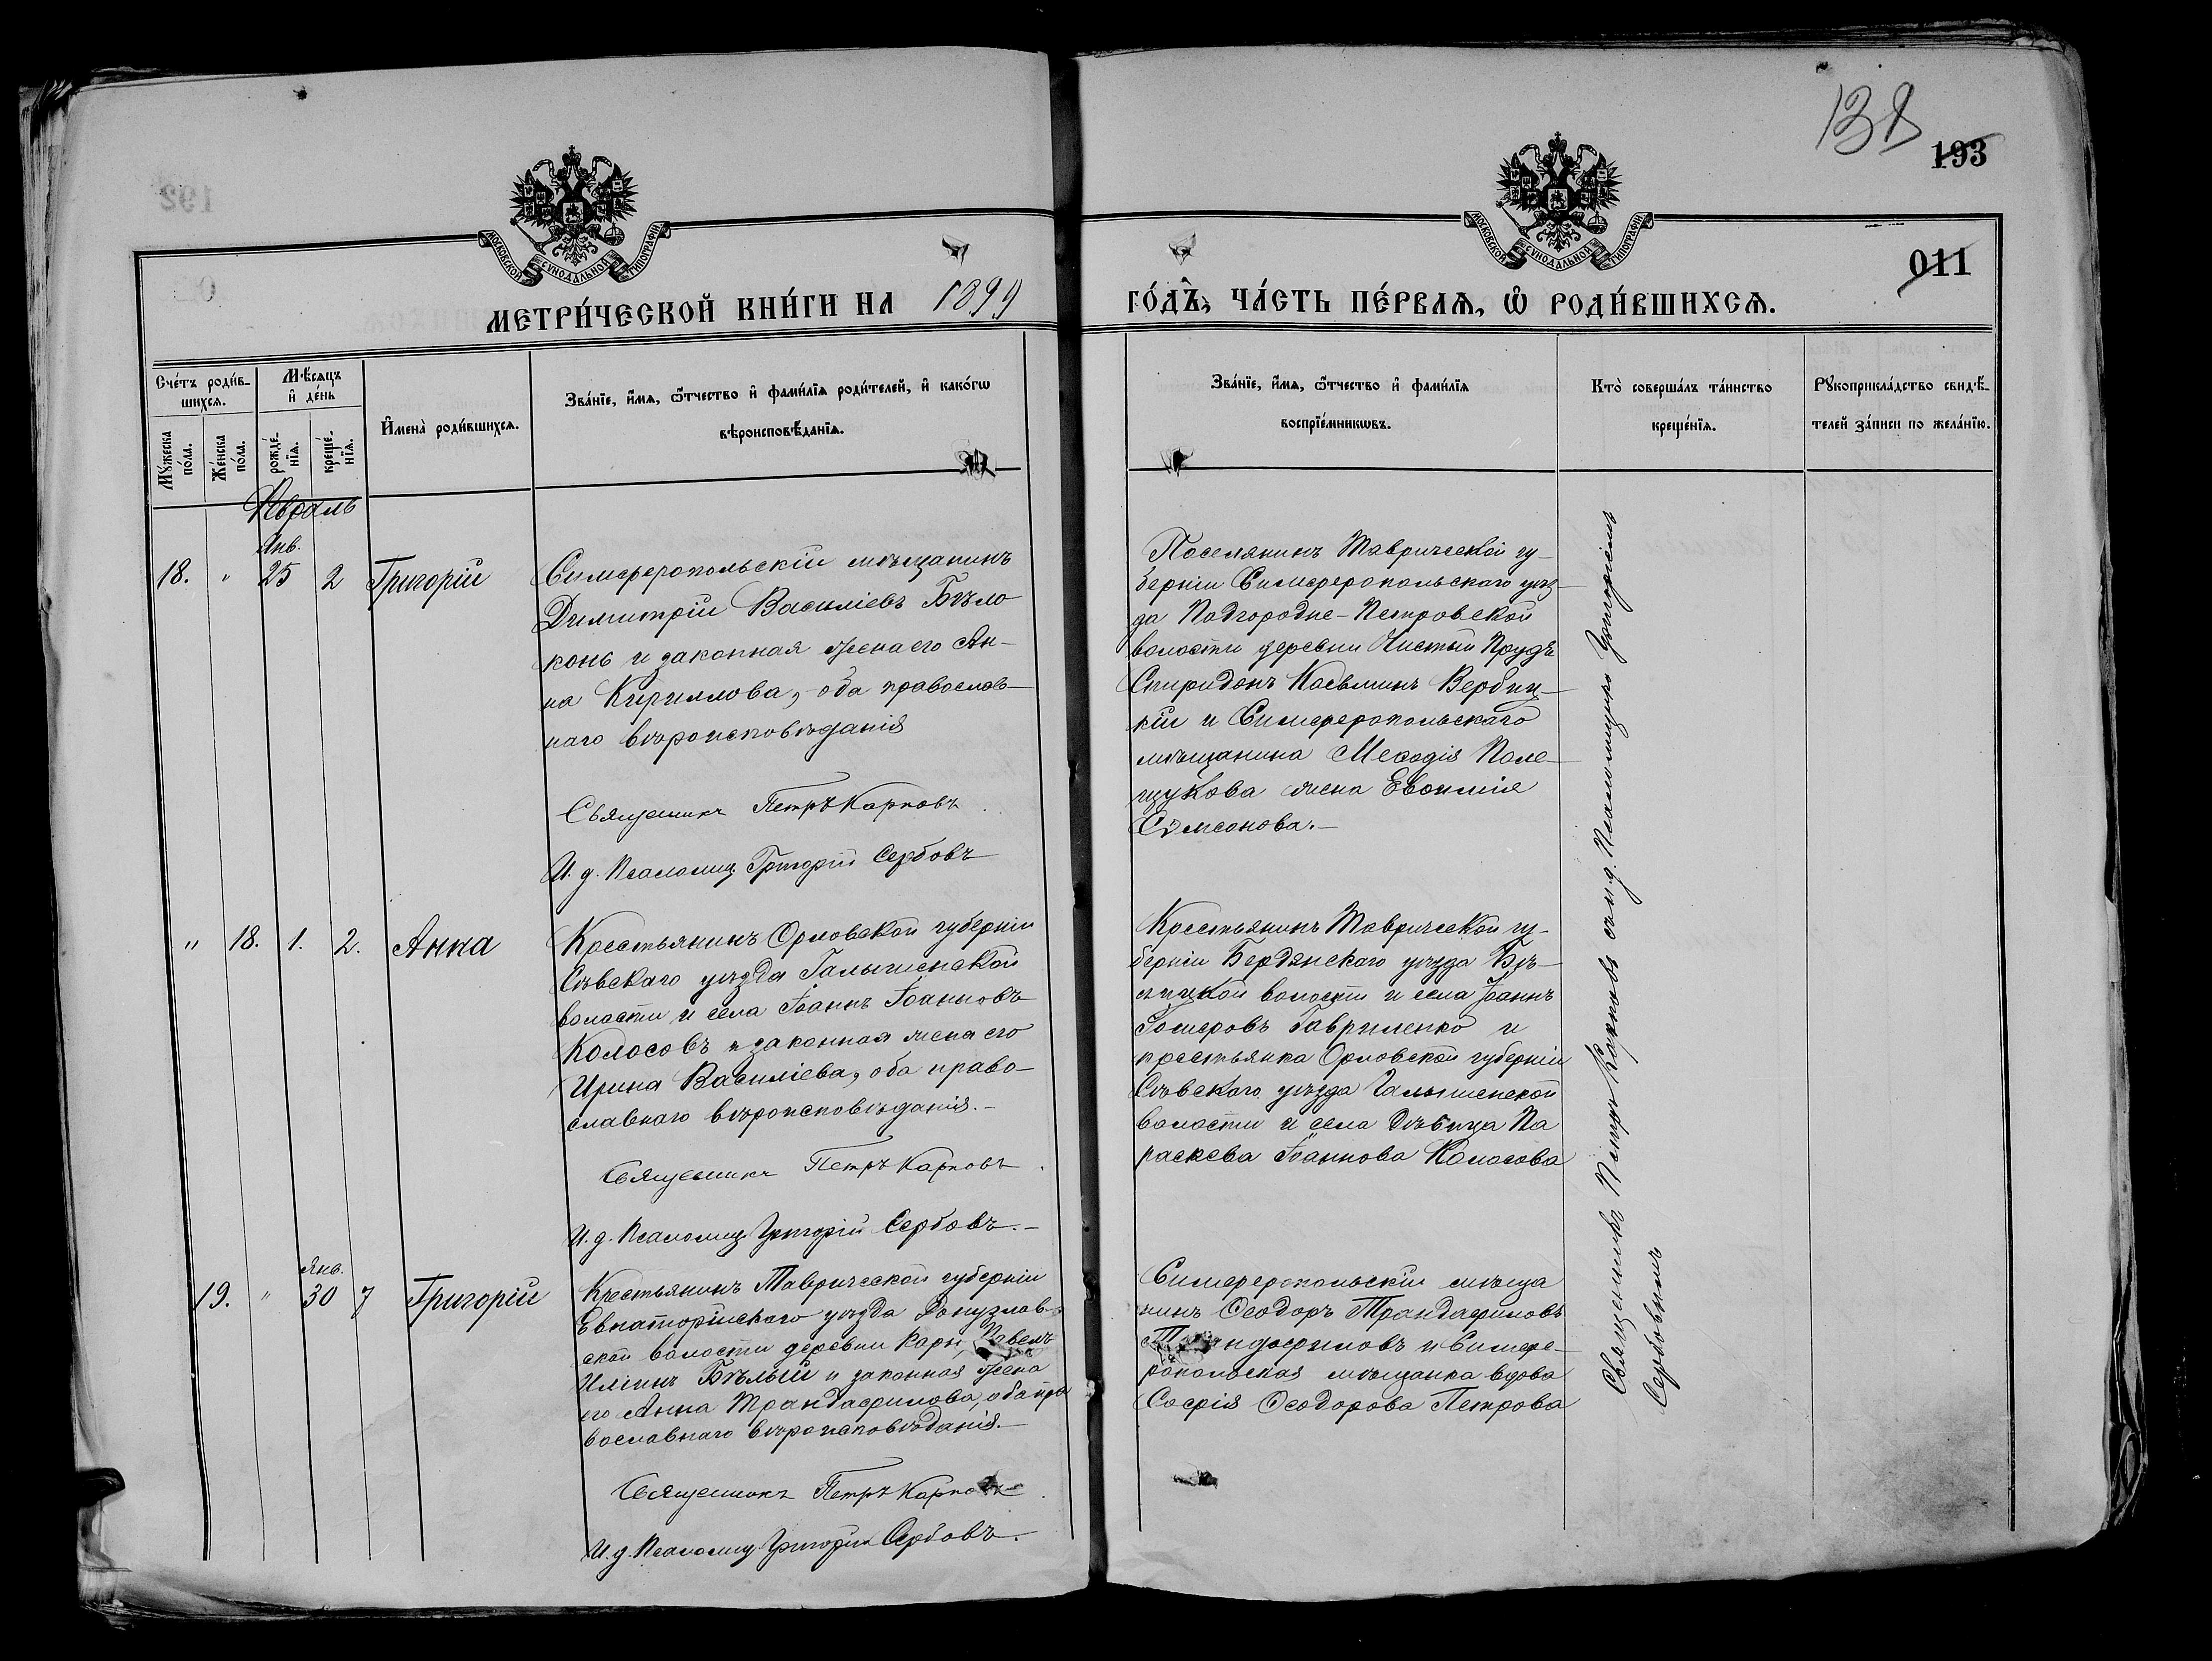 138
193
011
МОСКОВСКОЙ СѴНОДАЛЬНОЙ ТИПОГРАФІИ
МОСКОВСКОЙ СѴНОДАЛЬНОЙ ТИПОГРАФІИ
МЕТРИ́ЧЕСКОЙ КНИ́ГИ НА 1899
ГО́ДЪ, ЧА́СТЬ ПЕ́РВАѦ, Ѡ҆ РОДИ́ВШИХСѦ.
Сче́тъ роди́в-
шихсѧ.
Мꙋ́жеска
по́ла.
Же́нска
по́ла.
Мѣ́сѧцъ
и҆ де́нь
рожде́-
нїѧ.
креще́-
нїѧ.
И҆мена̀ роди́вшихсѧ.
Зва́нїе, и҆́мѧ, ѻ҆́тчество и҆ фами́лїѧ роди́телей, и҆ како́гѡ
вѣроисповѣ́данїѧ.
Зва́нїе, и҆́мѧ, ѻ҆́тчество и҆ фами́лїѧ
воспрїе́мникѡвъ.
Кто̀ соверша́лъ та́инство
креще́нїѧ.
Рꙋкоприкла́дство свидѣ́-
телей за́писи по жела́нїю.
Февраль
Янв.
18. " 25 2 Григорій
Симферопольскій мѣщанинъ
Димитрій Василіевъ Бѣло
конь и законная жена его Ан-
на Кириллова, оба православ-
наго вѣроисповѣданія
Священникъ Петръ Карповъ
И. д. Псаломщ. Григорій Сербовъ
Поселянинъ Таврической гу-
берніи Симферопольскаго уѣз-
да Подгородне-Петровской
волости деревни Чистый Прудъ
Спиридонъ Косьминъ Вербиц-
кій и Симферопольскаго
мѣщанина Меѳодія Поле-
щукова жена Евѳимія
Сѵмсонова.-
" 18. 1. 2. Анна
Крестьянинъ Орловской губерніи
Сѣвскаго уѣзда Галышенской
волости и села Іоаннъ Іоанновъ
Колосовъ и законная жена его
Ирина Василіева, оба право-
славнаго вѣроисповѣданія.-
Священникъ Петръ Карповъ
И. д. Псаломщ. Григорій Сербовъ.-
Крестьянинъ Таврической гу-
берніи Бердянскаго уѣзда
волости и села Іоаннъ
Гавриленко и
крестьянка Орловской губерніи
Сѣвскаго уѣзда Галышенской
волости и села дѣвица Па
раскева Іоаннова Колосова
Янв.
19. " 30 7 Григорій
Крестьянинъ Таврической губерніи
Евпаторійскаго уѣзда Донузлав-
ской волости деревни Кары, Павелъ
Иліинъ Бѣлый и законная жена
его Анна Трандафилова, оба пра
вославнаго вѣроисповѣданія.-
Священникъ Петръ Карповъ
И. д. Псаломщ. Григорій Сербовъ.
Симферопольскій мѣща
нинъ Ѳеодоръ Трандафиловъ
Трандафиловъ и Симфе-
ропольская мѣщанка вдова
Софія Ѳеодорова Петрова
Священникъ Петръ Карповъ съ и. д. Псаломщика Григоріемъ
Сербовымъ